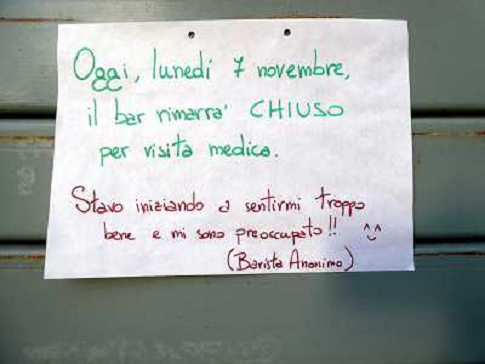 Oggi, lunedí 7 novembre,
il bar rimarra' CHIUSO
per visita medica.
Stavo iniziando a sentirmi troppo
bene e mi sono preoccupato!! ^_^
(Barista Anonimo)